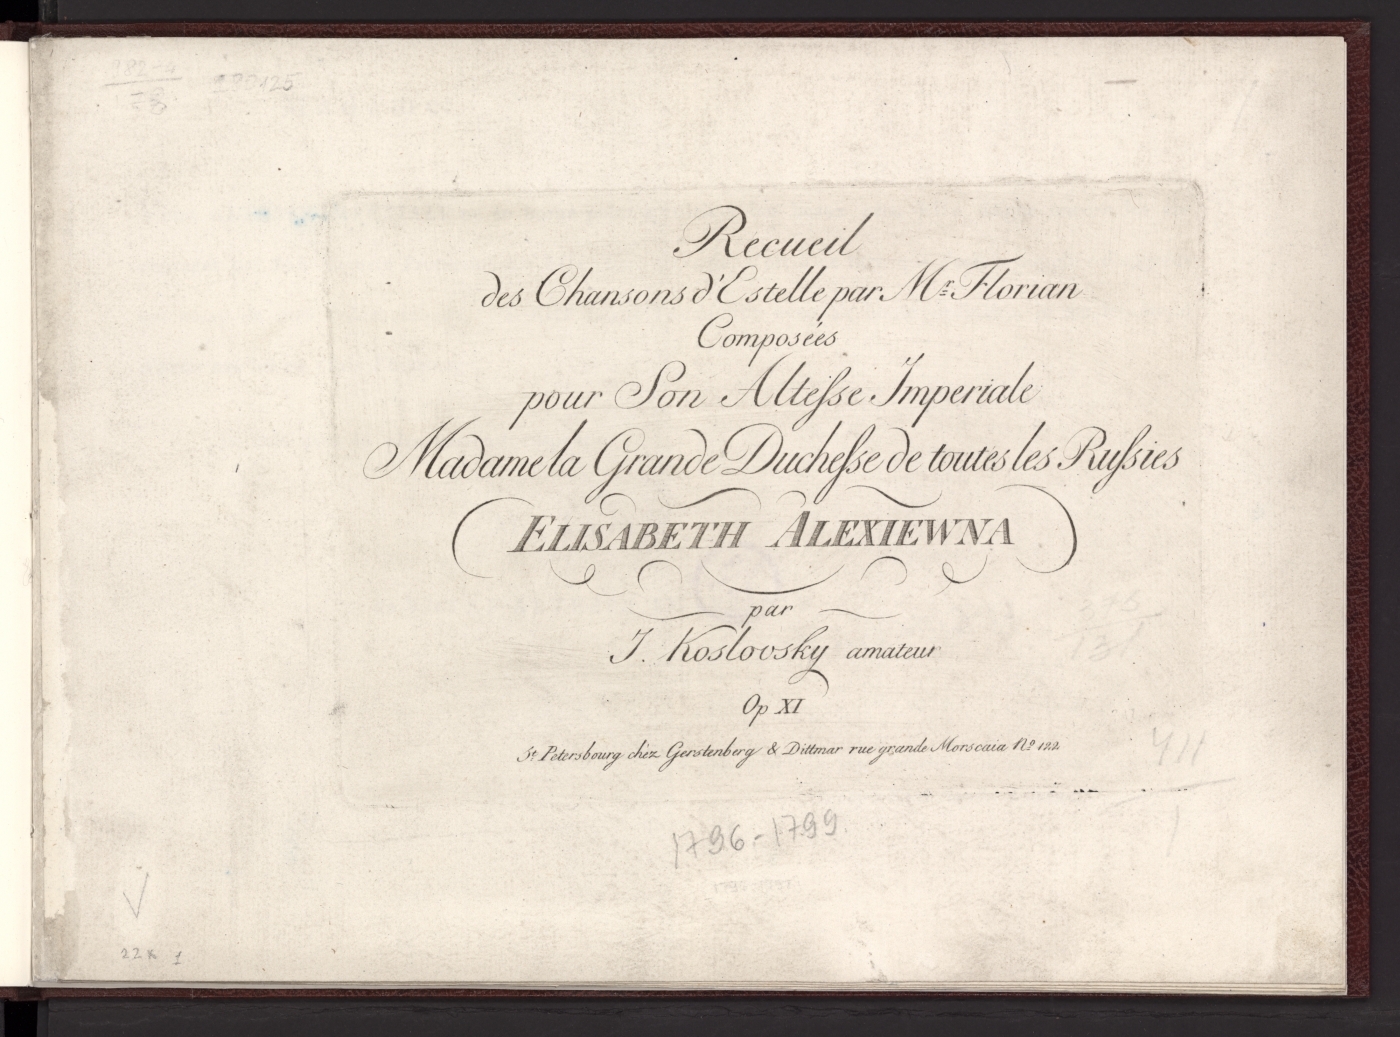 125
Recueil
des Chansons d'Estelle par Mr. Florian
Composées
pour Son Altesse Imperiale
Madame la Grande Duchesse de toutes les Russies
ELISABETH ALEXIEWNA
par
J. Koslovsky amateur
Op XI
St. Petersbourg chéz Gerstenberg & Dittmar rue grande Morscaia No. 122
411
1
1796-1799
22к 1